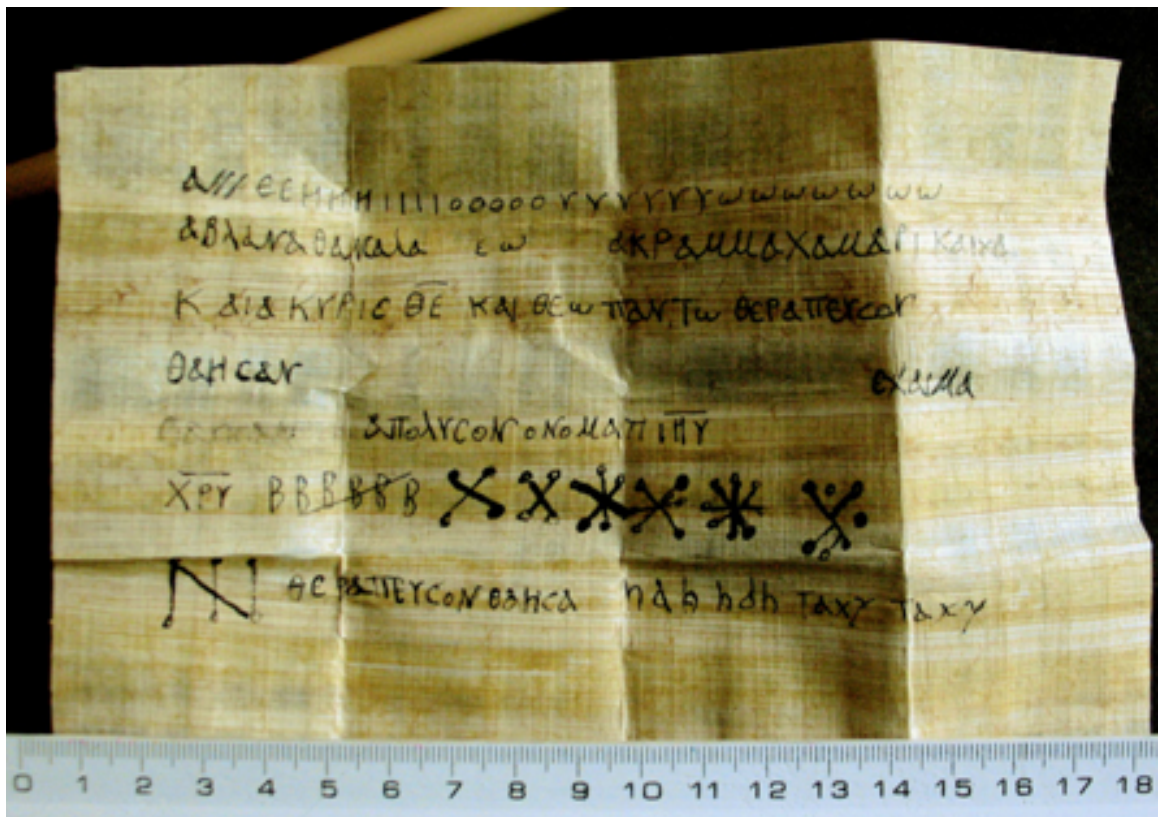 α/// ΕΕ ΗΗΗ ΙΙΙΙ ΟΟΟΟΟ ΥΥΥΥΥΥ ωωωωωωω
ΑΒΛΑΝΑΘΑ εω ΑΚΡΑΜΜΑΧΑΜΑΡΙ ΚΑΙΧΑ
Κ ΑΙΑ ΚΥΡΙϹ Θ̅Ε̅ ΚΑΙ ΘΕω ΠΑΝΤω ΘΕΡΑΠΕΥϹΟΝ
ΘΑΗϹΑΝ
ΑΠΟΛΥϹΟΝ ΟΝΟΜΑΠΙ Ι̅Η̅Υ̅
Χ̅Ρ̅Υ̅ ΒΒΒΒΒΒ
ΘΕΡΑΠΕΥϹΟΝ ΘΑΗϹΑ ηδη ηδη ΤΑΧΥ ΤΑΧΥ
0 1 2 3 4 5 6 7 8 9 10 11 12 13 14 15 16 17 18